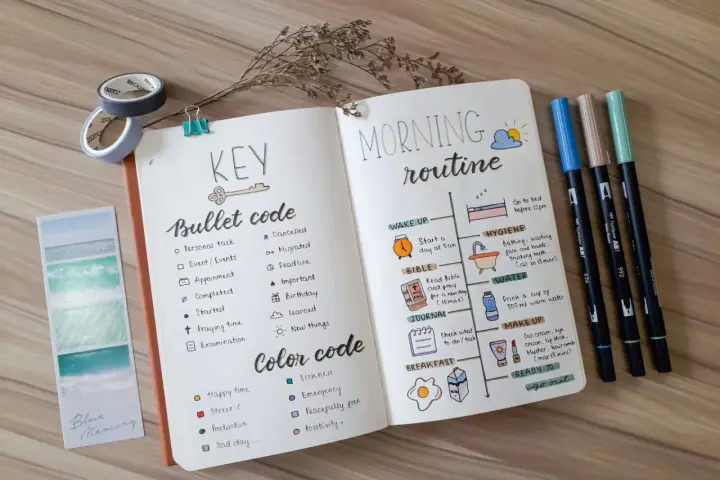 KEY
Bullet code
Personal task
Event / Events
Appoinment
Completed
Started
Praying time
Examination
Canceled
Migrated
Deadline
Important
Birthday
Learned
New things
Color code
Happy time
Stress :(
Productive
Sad day...
Sickness
Emergency
Peacefully
Positivity +
MORNING
routine
zzz
Go to bed
before 12pm
WAKE UP
Start a
day at 5am
HYGIENE
Bathing, washing
face and hands,
brushing teeth
BIBLE
Read Bible
and pray
for a new day
(15 mins)
WATER
Drink a cup of
500 ml warm water
JOURNAL
Check what
to do / task
MAKE UP
Sun cream, eye
cream, lip stick,
blusher, hair comb
(max 15 mins)
BREAKFAST
READY TO
go out
Blue
Memory